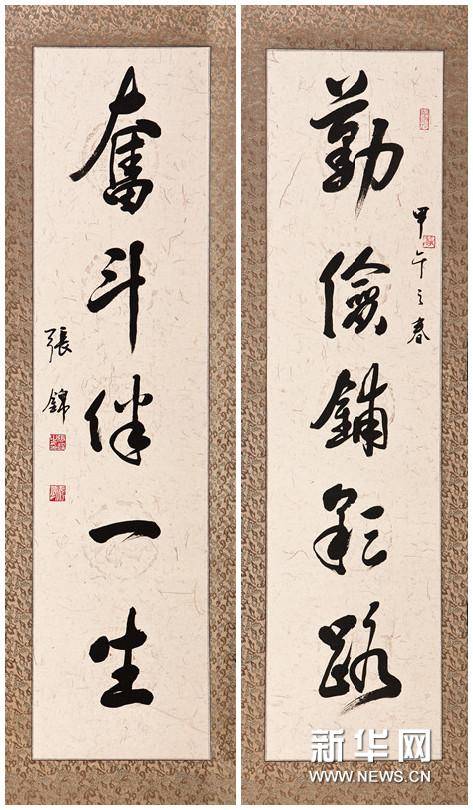 甲午之春
勤儉鋪彩路
奮斗伴一生
張錦
新华网
WWW.NEWS.CN